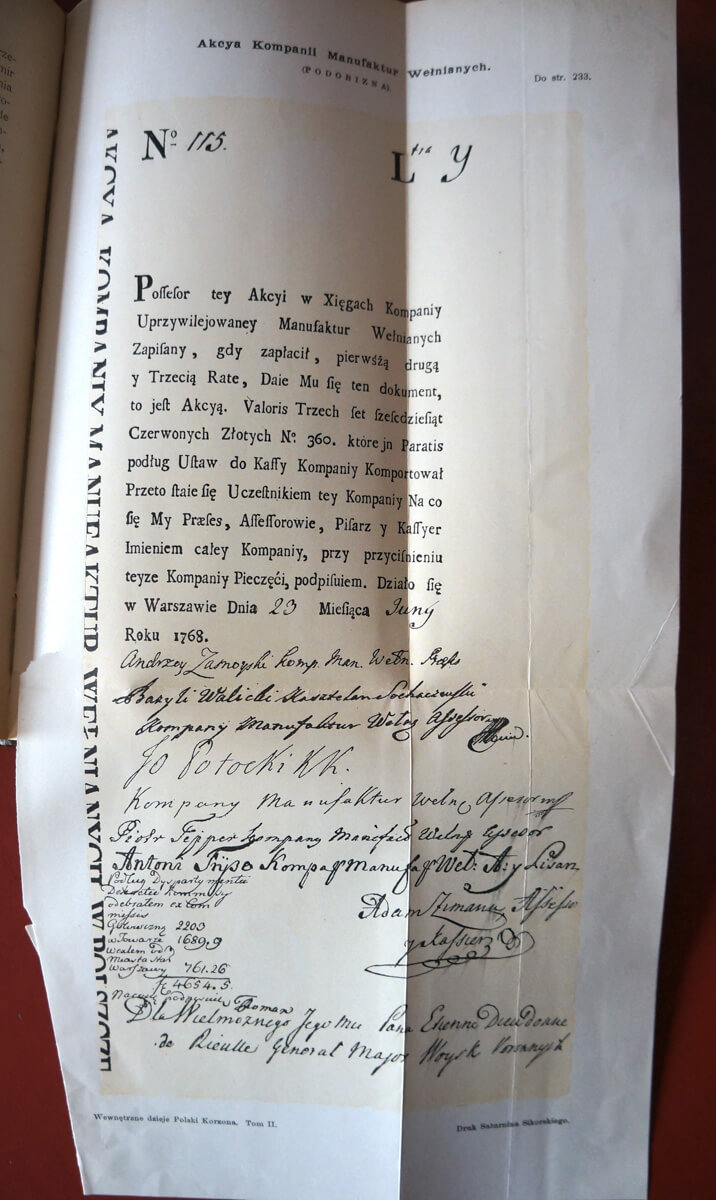 Akcya Kompanii Manufaktur Wełnianych.
(PODOBIZNA).
Do str. 233.
No 115.
Ltra Y
AKCYA KOMPANIY MANUFAKTUR WEŁNIANYCH W POLSZCZE
Poſſeſor tey Akcyi w Xięgach Kompaniy
Uprzywilejowaney Manufaktur Wełnianych
Zapiſany, gdy zapłacił, pierwśżą drugą
y Trzecią Rate, Daie Mu ſię ten dokument,
to jeſt Akcyą. Valoris Trzech ſet ſzeſcdzieſiąt
Czerwonych Złotych No 360. które jn Paratis
podług Uſtaw do Kaſſy Kompaniy Komportował
Przeto ſtaie ſię Uczeſtnikiem tey Kompaniy Na co
ſię My Præſes, Aſſeſſorowie, Piſarz y Kaſſyer
Imieniem całey Kompaniy, przy przyciſnieniu
teyze Kompaniy Pieczęći, podpiſuiem. Działo ſię
w Warszawie Dnia 23 Mieſiąca Juny
Roku 1768.
Andrzey Zamoyski Komp. Man. Wełn.
Bazyli Walicki Kasztelan Sochaczewski
Kompany Manufaktur Wełnę Aſſeſſor
Jo Potocki KK.
Kompany Manufaktur Wełnę Aſſeſor
Piotr Tepper Kompany Manufact Wełnę Aſſeſor
Antoni Kompa Manufa Weł: A: y Pisarz
Adam Aſſeſſor
y Kaſſier
Podług Dyspartymentu
Kommissy
odebrałem ex Com
missis
Gotowizną 2203
w Towarze 1689.9
Miasta Star
Warszawy 761.26
4654.5
Roman
Dla Wielmożnego Jego Mci Pana Etienne Dieudonne
de Rieulle General Major Woysk Koronnych
Wewnętrzne dzieje Polski Korzona. Tom II.
Druk Saturnina Sikorskiego.